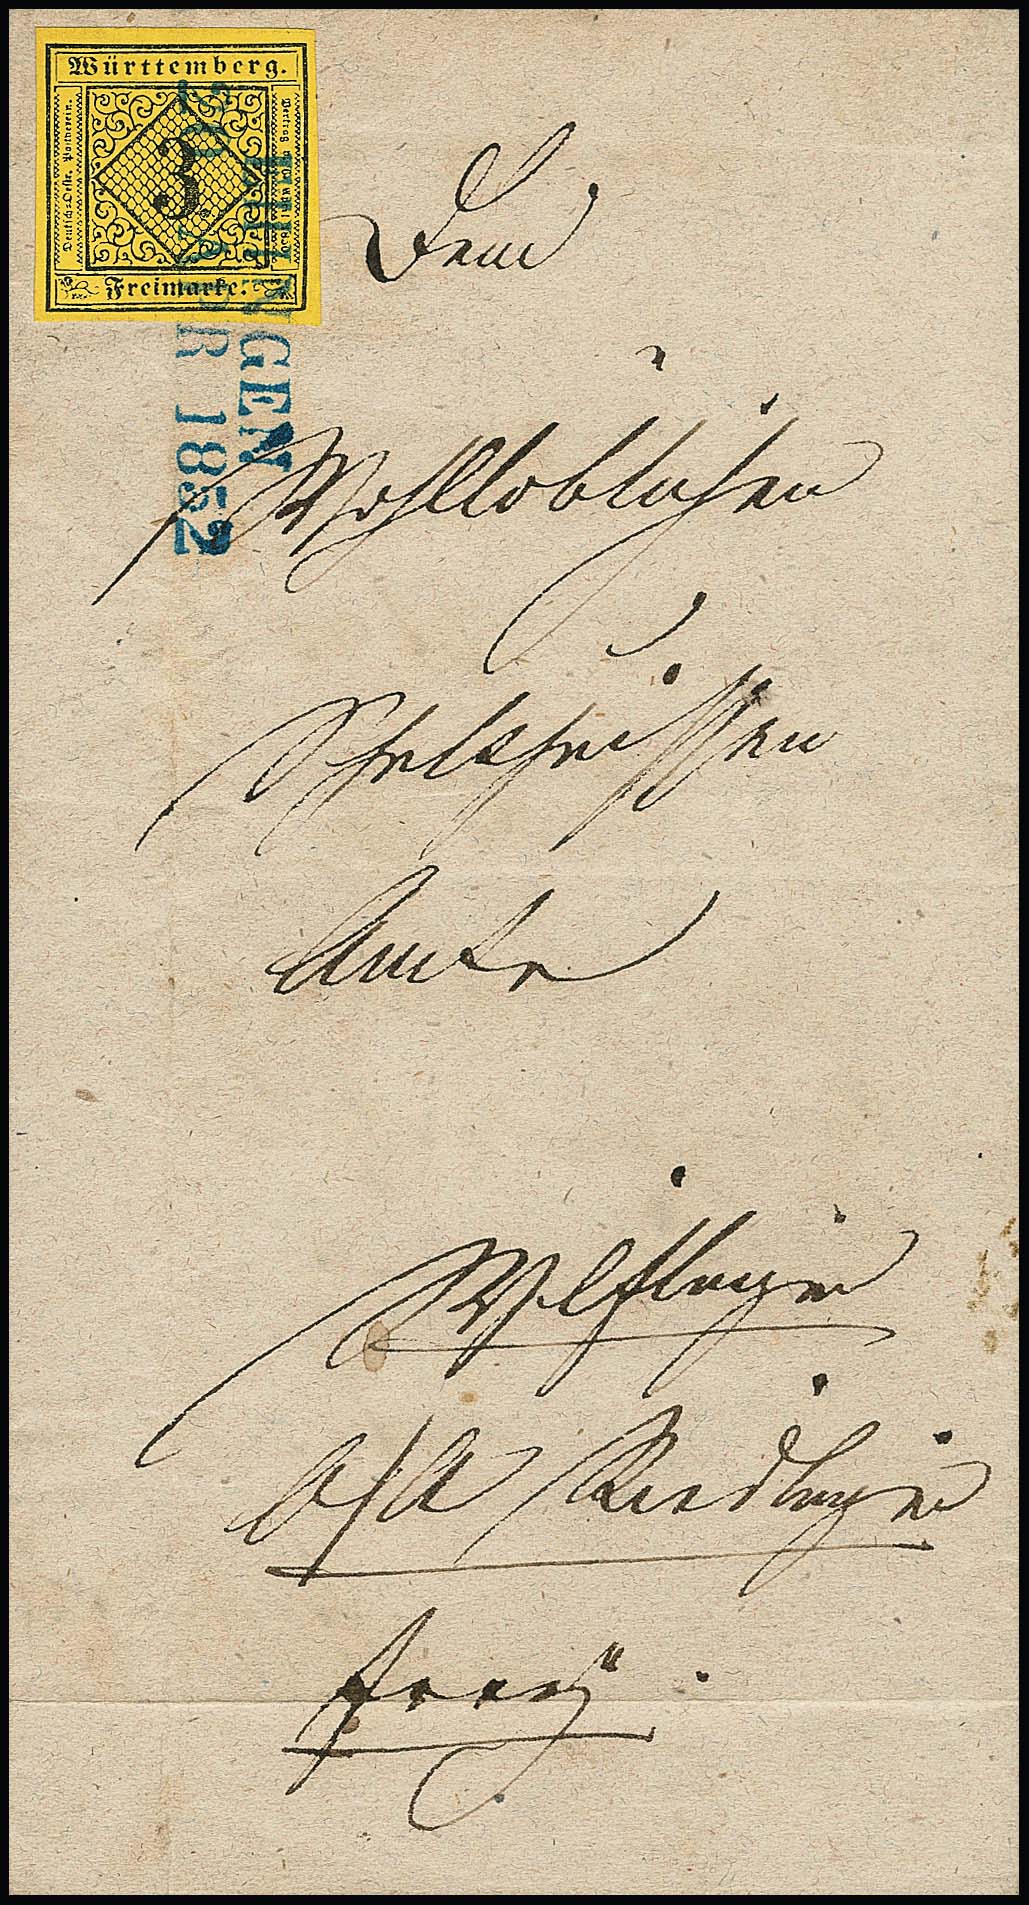 Württemberg.
Deutsch-Oestr. Postverein.
3.
Vertrag v. 6. April 1850.
Freimarke.
INGEN
30 APR 1852
Dem
Wohllöblichen
Schultheißen
Amte
Wilflingen
O/A Riedlingen
frey.